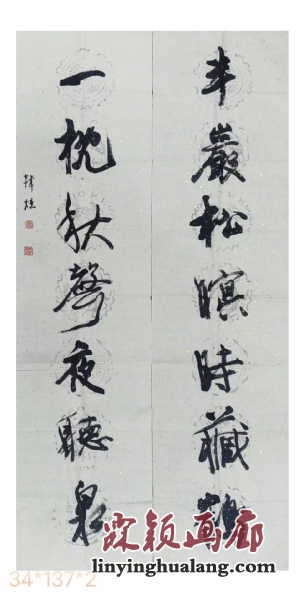 半巖松暝時藏鶴
一枕秋聲夜聽泉
霖颖画廊
linyinghualang.com
34*137*2